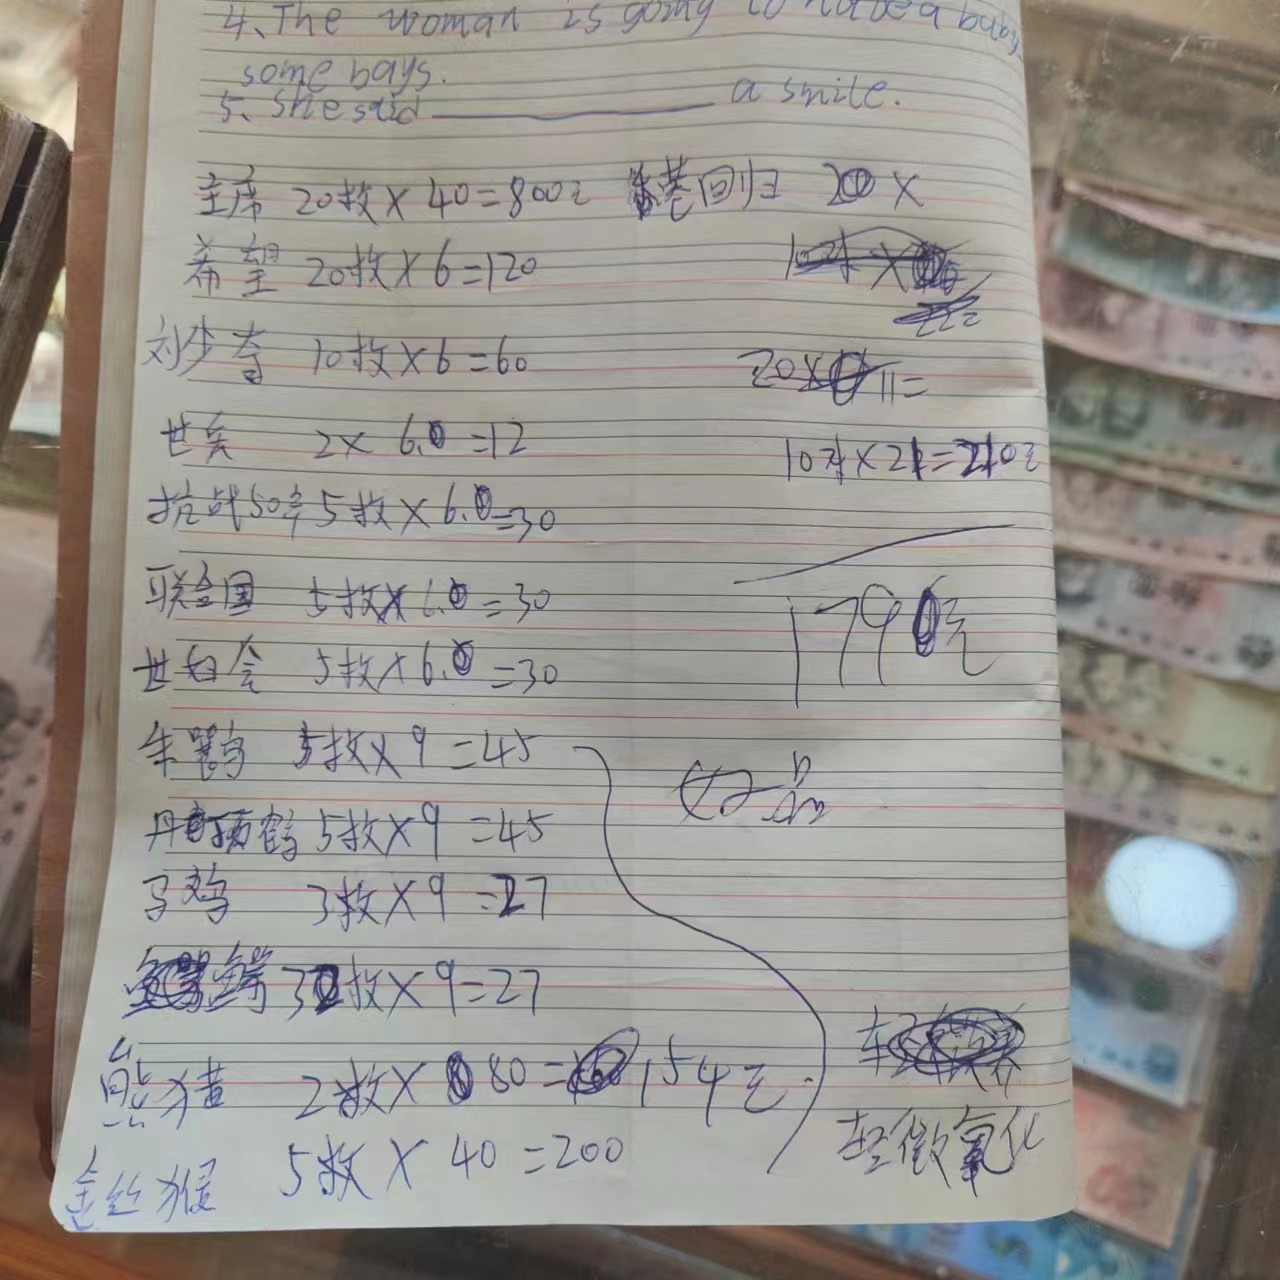 4、The woman is going to have a baby
some bays.
5、She said ________ a smile.
主席 20枚×40=800元 港回归 20 ×
希望 20枚×6=120
刘少奇 10枚×6=60
20×11=
世宾 2×6.0=12
10对×21=210元
抗战50年 5枚×6.0=30
联合国 5枚×6.0=30
1790元
世妇会 5枚×6.0=30
朱鹮鸟 5枚×9=45
好品
丹顶鹤 5枚×9=45
马鸡 3枚×9=27
鲟 32枚×9=27
熊猫 2枚×80=154元
轻微氧化
金丝猴 5枚×40=200